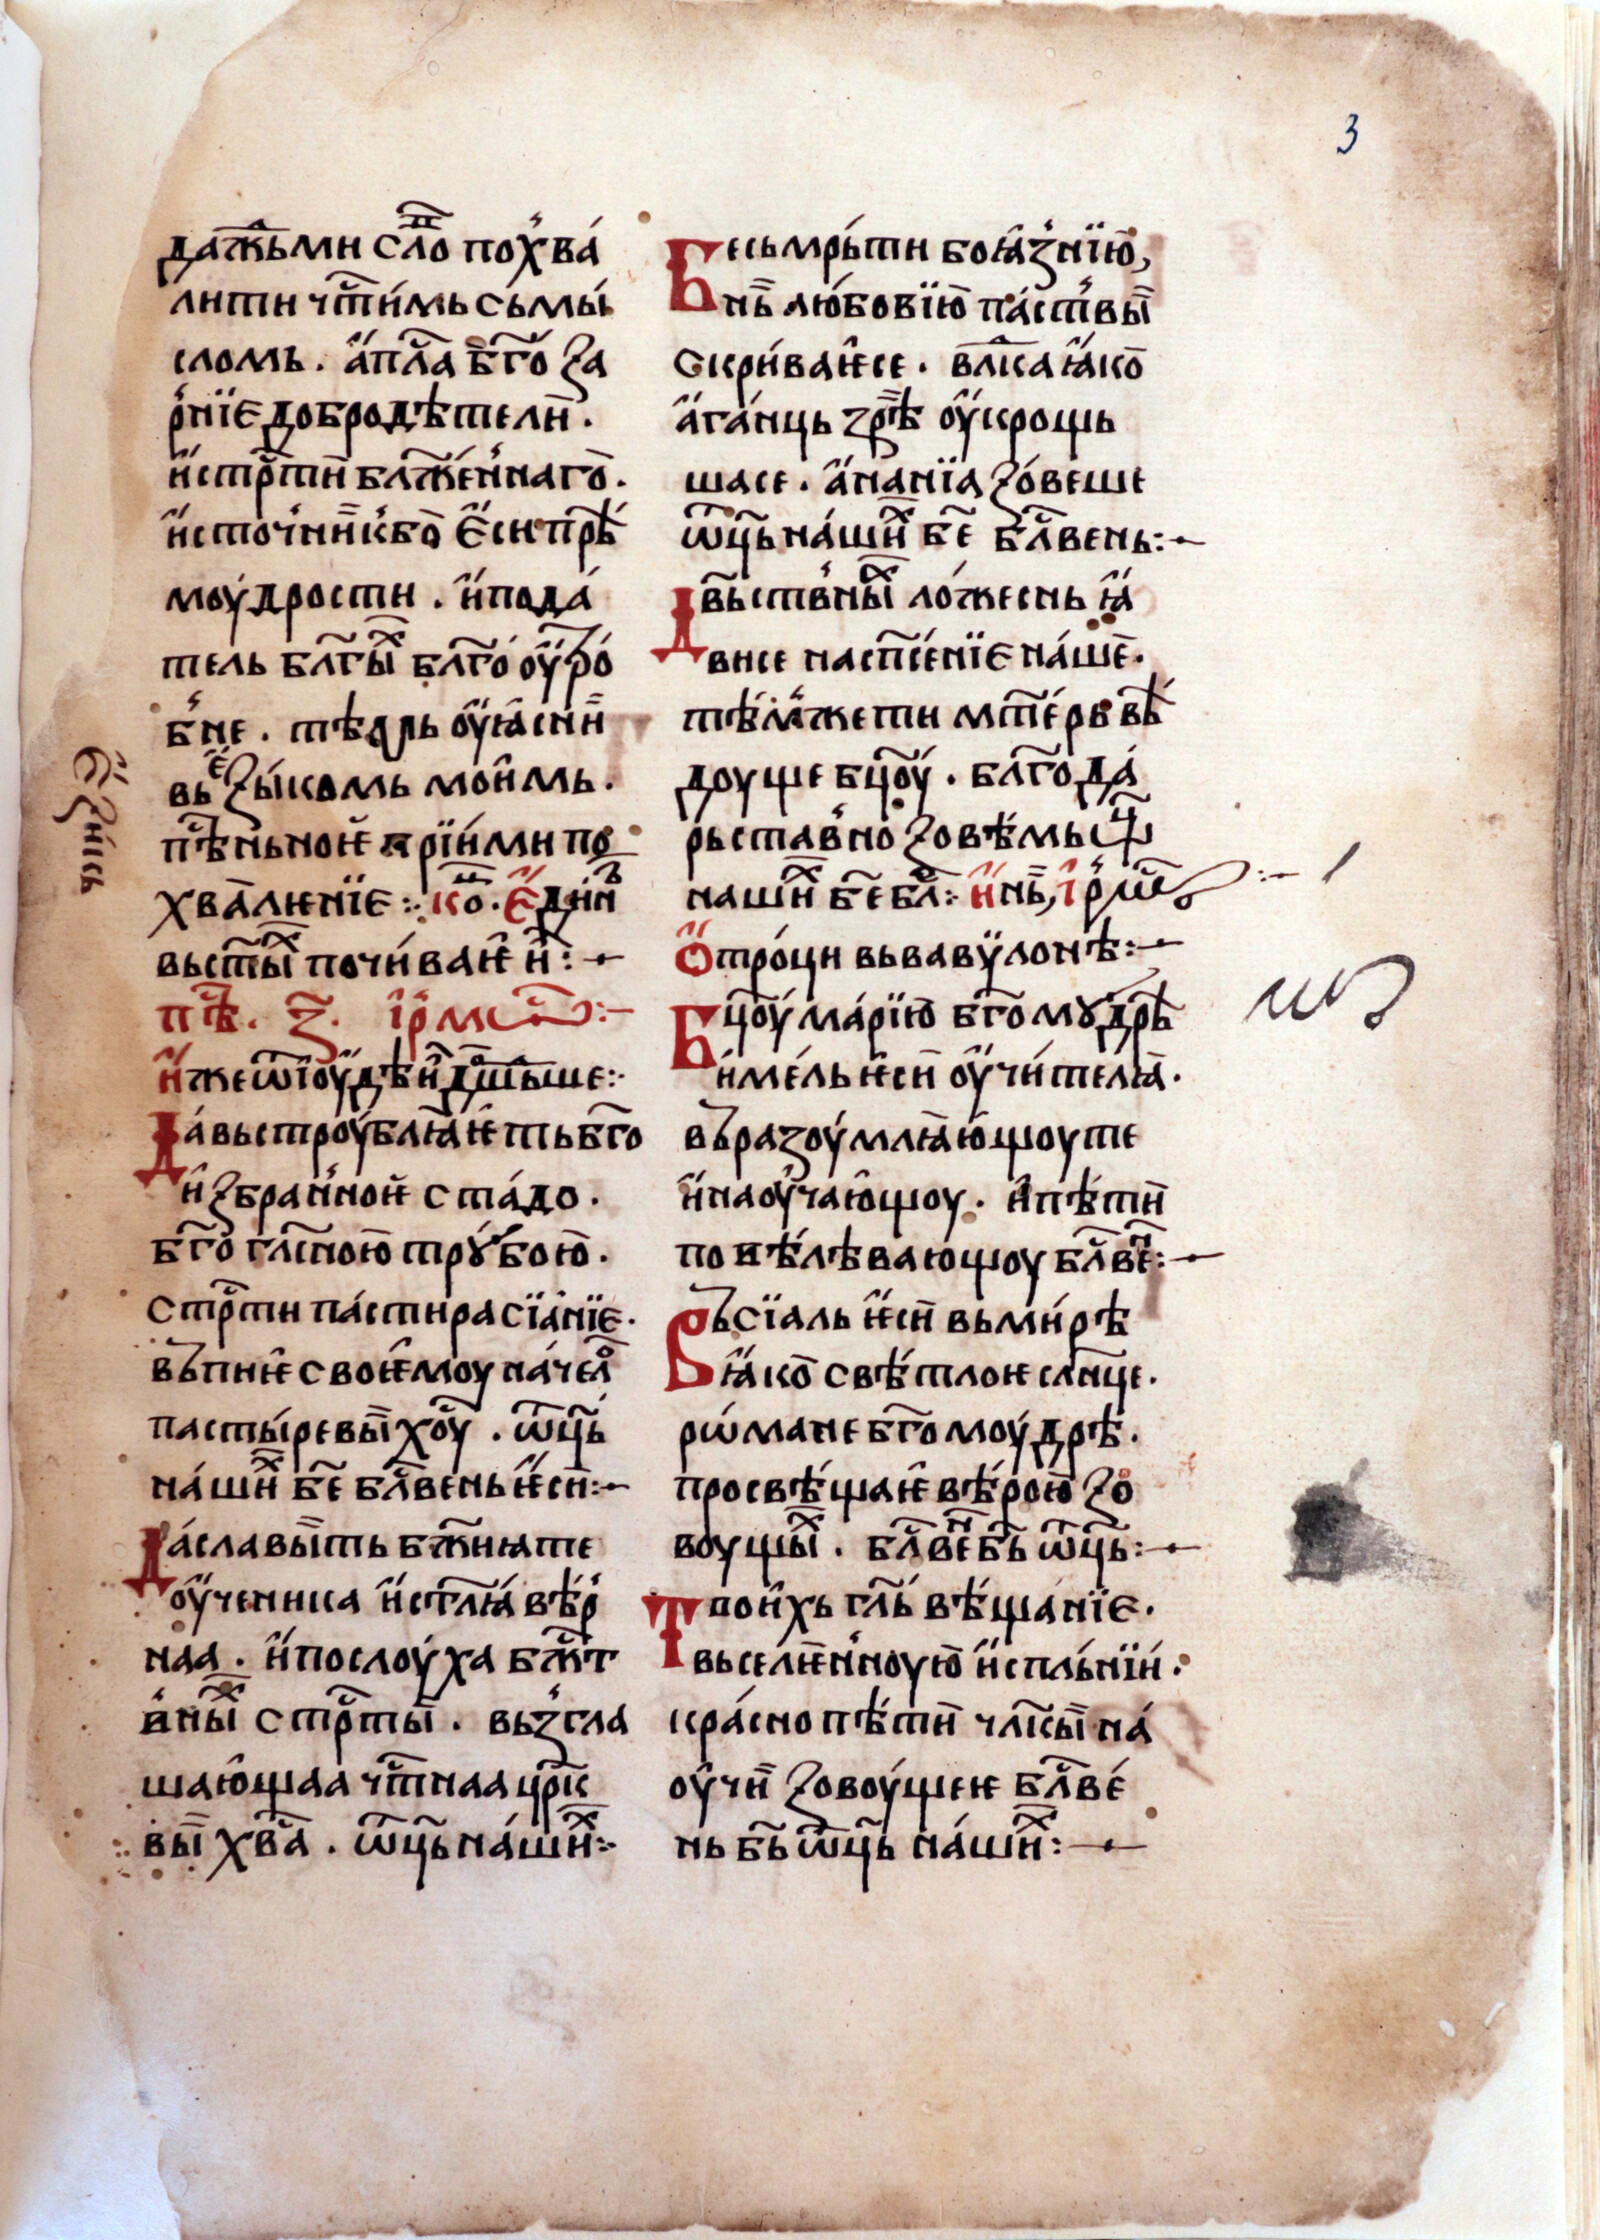 3
даждьми сло̑ похва́
лити чⷭ҇ти́мь сьмы́
сломь . а҆пⷭ҇ла бг҃о за
рнїе добродѣтели .
и҆ стрⷭ҇ти блаже́ннаго .
и҆сточникь бо е҆си прѣ
моу́дрости . и҆ пода́
тель бл҃гыⷯ бл҃го оу҆ро́
бне . тѣмь оу҆ꙗсни
вь е҆зы́комь мои҆мь .
пѣⷭ҇ньной прїи́ми по
хва́лѥнїе : ко . е҆ди́нь
вь ст҃ыⷯ почи́ваѥ и҆ :
пѣⷭ҇ . з . і҆рмⷭ҇ѡ :
и҆же ѿ і҆оу҆дѣи дошьдьше :
Да вьстроу́блꙗѥть бг҃о
и҆збранной ста́до .
бг҃о гла́сною троу́бою .
стрⷭ҇ти па́стира сїа́нїе .
вьпиѥ своѥмоу на́челⷪ
пасты́ревы хⷭ҇оу . ѿць
на́шиⷯ бе҃ блⷭ҇вень ѥси :
Да сла́выть бж҃ниꙗ те
оу҆ченика и҆ стеглꙗ вѣ́р
наа . и҆ послоу́ха бжⷭ҇т
вныⷯ стрⷭ҇ты . вьзгла
шаю҆щаа чⷭ҇тнаа црⷦ҇
вы хва . ѿць на́шиⷯ :
е҆зиісь
Бесьмрьти боꙗзнїю,
нь лю́бовїю па́ствы
скри́ваѥсе . влⷣка ꙗко
а҆га́нць зрѣ оу҆крощь
шасе . а҆нанїа зо́веше
ѿць на́шиⷯ бе҃ блⷭ҇вень :
Дв҃ьствныⷯ ло́жеснь ꙗ
висе на сп҃се́нїе на́ше .
тѣ́мже ти мт҃ерь вѣ
доуще бц҃оу́ . бл҃года́
рьставно зовѣмь ѿц
нашиⷯ бе҃ блⷭ҇ : и҆ нⷩ҇ꙗ, і҆рмⷭ҇ѡ
о҆тро́ци вь вавѷлонѣ :
Бц҃оу́ ма́рїю бг҃омꙋ́дрѣ
и҆ме́ль ѥси оу҆чи́телꙗ .
вьразоу́млꙗю҆щоу те
и҆ наоу҆чаю҆щоу . и҆ пѣти
повѣ́лѣваю҆щоу блⷭ҇веⷩ :
Вьсїаль ѥси вь ми́рѣ
ꙗко свѣ́тлоѥ слн҃це .
рѡмане бг҃омоу́дрѣ .
просвѣ́щаѥ вѣ́рою зо
воущыⷯ . блⷭ҇веⷩ бь҃ ѿць :
Твои҆хь гл҃ь вѣща́нїе .
вьселѥнноую и҆спльнїи .
кра́сно пѣти члⷡ҇кы на́
оу҆чи зовоу́щеѥ блⷭ҇ве́
нь бь҃ ѿць на́шиⷯ :